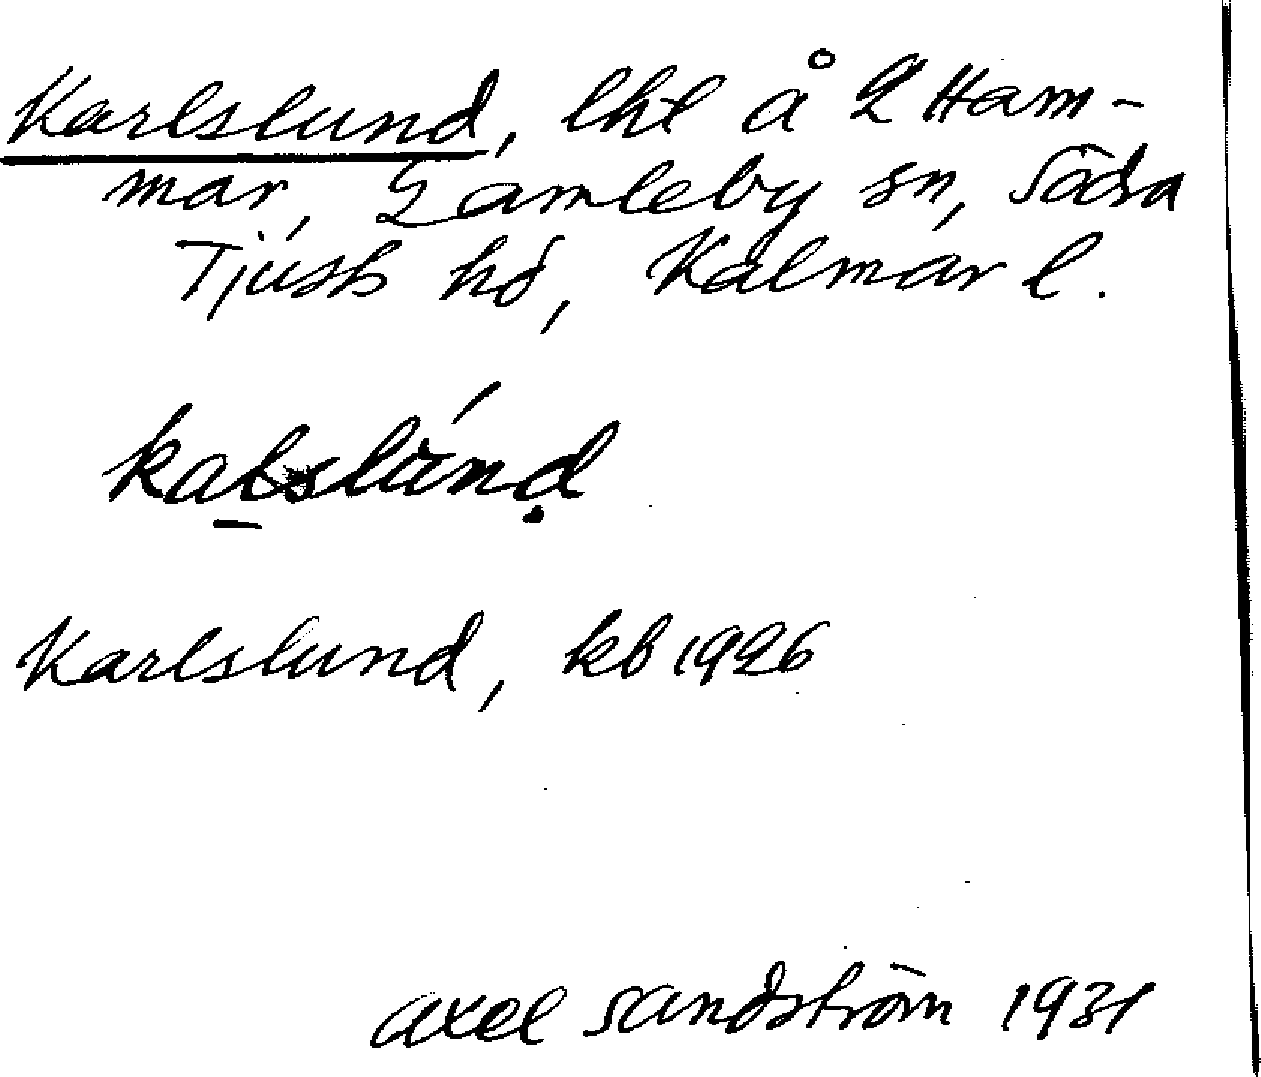 Karlslund, lht å L Ham-
mar, Gamleby sn, Södra
Tjusts hd, Kalmar l.
kalslúnḍ
Karlslund, kb 1926
Axel Sandström 1931